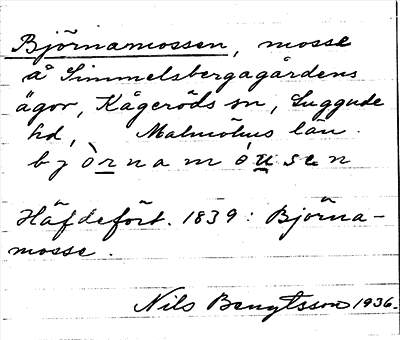 Björnamossen, mosse
å Simmelsbergagårdens
ägor, Kågeröds sn, Luggude
hd, Malmöhus län.
b j ò r n a m ó u s e n
Häfdefört. 1839: Björna-
mosse.
Nils Bengtsson 1936.